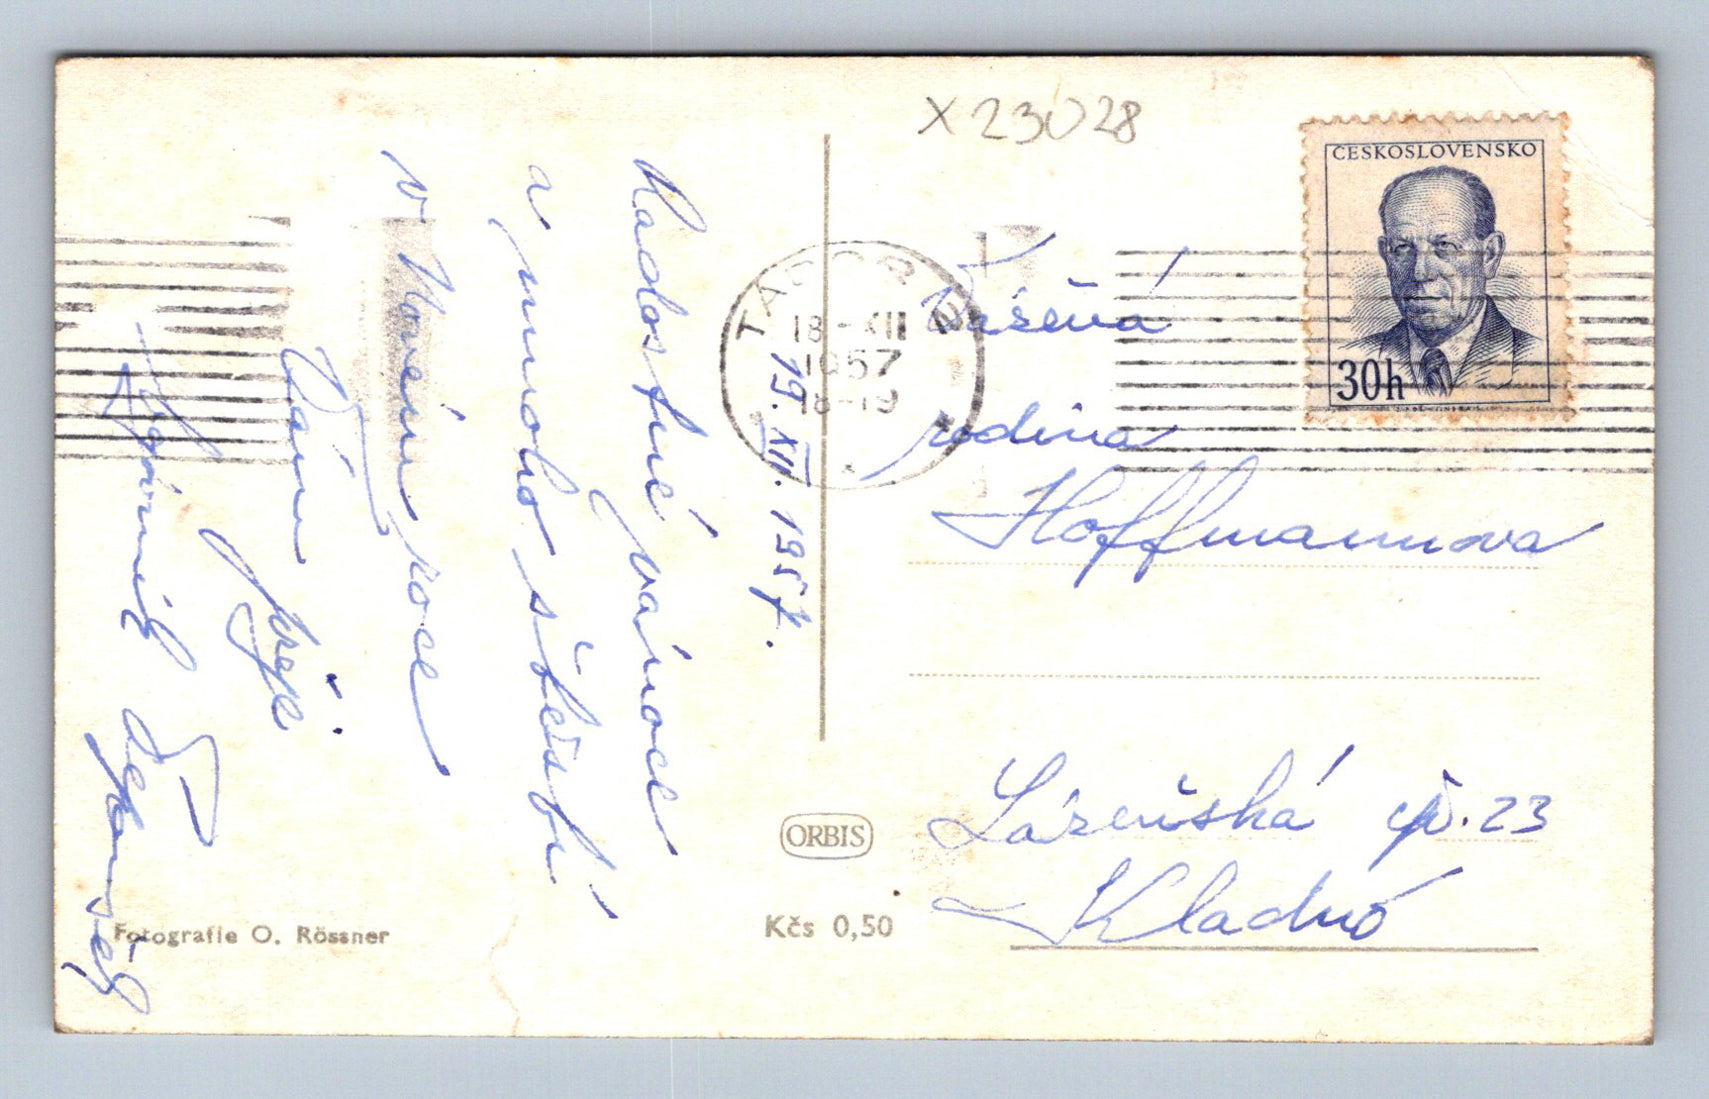 X 23028
ČESKOSLOVENSKO
30h
TÁBOR
18-XII
1957
18-19
19. XII. 1957.
Radostné vánoce
a mnoho štěstí
v Novém roce
Vám
přeje
Vážená
rodina
Hoffmannova
Lázeňská čp. 23
Kladno
ORBIS
Kčs 0,50
Fotografie O. Rössner